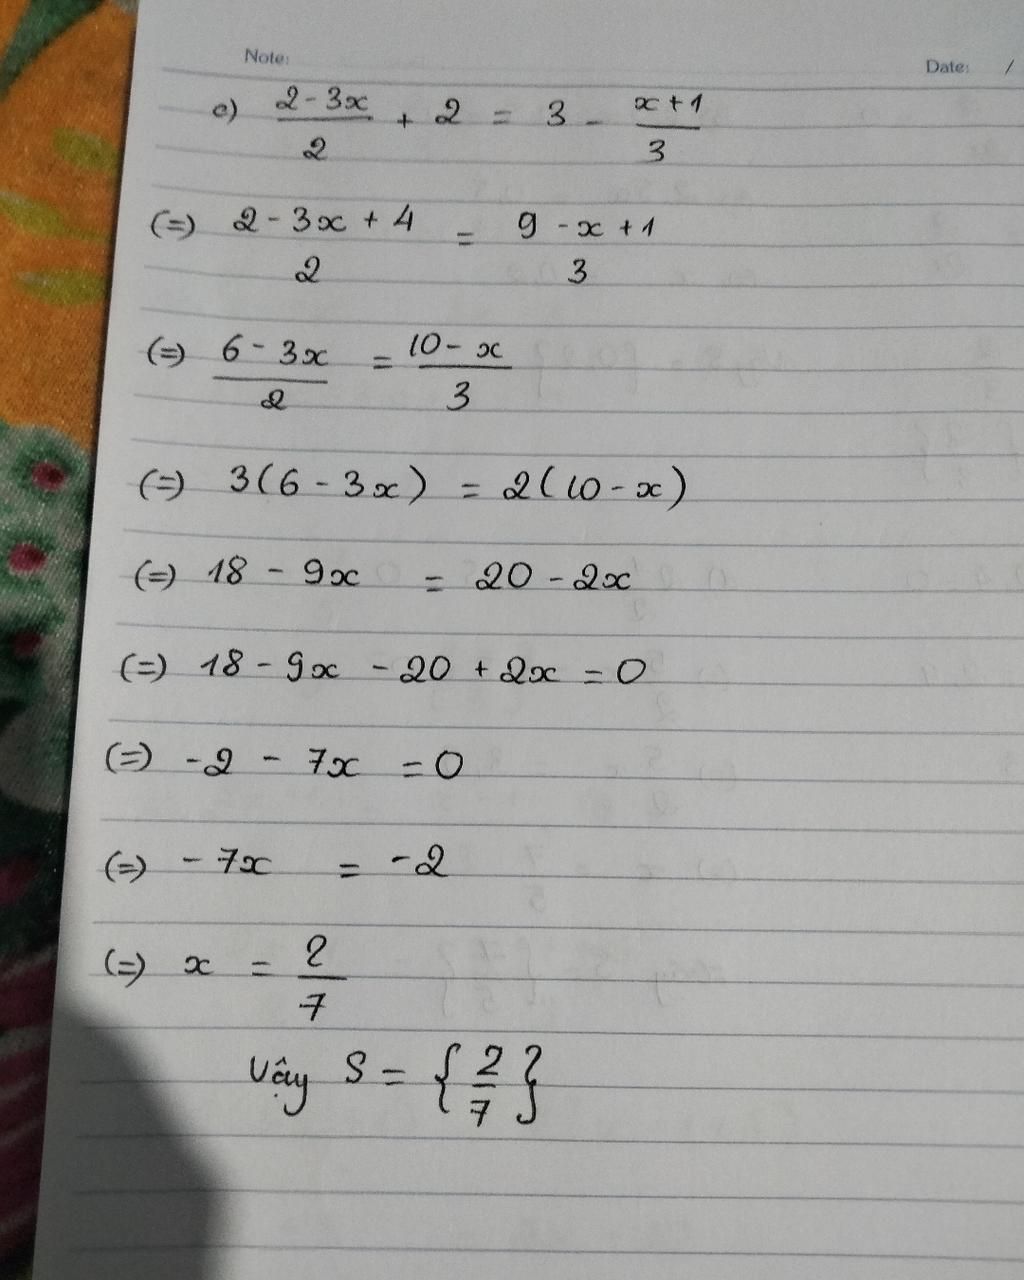 Note:
Date: /
c) (2-3x)/2 + 2 = 3 - (x+1)/3
(=) (2-3x+4)/2 = (9-x+1)/3
(=) (6-3x)/2 = (10-x)/3
(=) 3(6-3x) = 2(10-x)
(=) 18-9x = 20-2x
(=) 18-9x-20+2x=0
(=) -2-7x=0
(=) -7x = -2
(=) x = 2/7
Vậy S = {2/7}